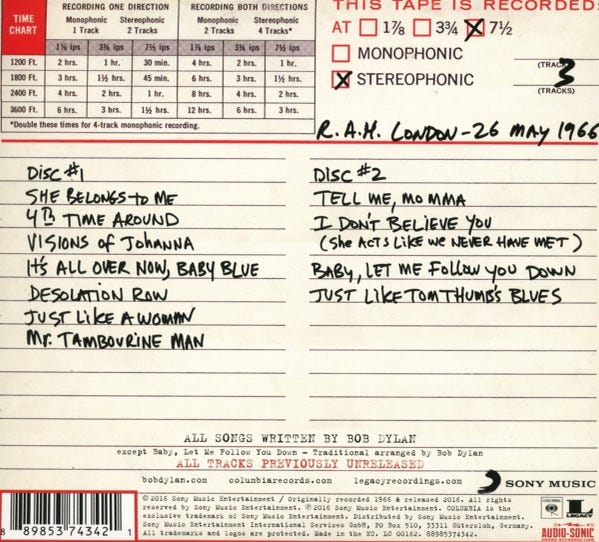 THIS TAPE IS RECORDED:
TIME CHART
RECORDING ONE DIRECTION
RECORDING BOTH DIRECTIONS
Monophonic 1 Track
Stereophonic 2 Tracks
Monophonic 2 Tracks
Stereophonic 4 Tracks*
1⅞ ips 3¾ ips 7½ ips 1⅞ ips 3¾ ips 7½ ips
1200 Ft. 2 hrs. 1 hr. 30 min. 4 hrs. 2 hrs. 1 hr.
1800 Ft. 3 hrs. 1½ hrs. 45 min. 6 hrs. 3 hrs. 1½ hrs.
2400 Ft. 4 hrs. 2 hrs. 1 hr. 8 hrs. 4 hrs. 2 hrs.
3600 Ft. 6 hrs. 3 hrs. 1½ hrs. 12 hrs. 6 hrs. 3 hrs.
*Double these times for 4-track monophonic recording.
AT 1⅞ 3¾ X 7½
MONOPHONIC
X STEREOPHONIC
(TRACK)
3
(TRACKS)
R.A.H. LONDON - 26 MAY 1966
DISC #1
SHE BELONGS TO ME
4th TIME AROUND
VISIONS of JOHANNA
IT'S ALL OVER NOW, BABY BLUE
DESOLATION ROW
JUST LIKE A WOMAN
Mr. TAMBOURINE MAN
DISC #2
TELL ME, MOMMA
I DON'T BELIEVE YOU
(She ACTS LIKE WE NEVER HAVE MET)
BABY, LET ME Follow YOU DOWN
JUST LIKE TOM THUMB'S BLUES
ALL SONGS WRITTEN BY BOB DYLAN
except Baby, Let Me Follow You Down - Traditional arranged by Bob Dylan
ALL TRACKS PREVIOUSLY UNRELEASED
bobdylan.com columbiarecords.com legacyrecordings.com
SONY MUSIC
℗ 2016 Sony Music Entertainment / Originally recorded 1966 & released 2016. All rights
reserved by Sony Music Entertainment. ℗ 2016 Sony Music Entertainment. COLUMBIA is the
exclusive trademark of Sony Music Entertainment. Distributed by Sony Music Entertainment.
Sony Music Entertainment International Services GmbH, PO Box 510, 33311 Gütersloh, Germany.
All trademarks and logos are protected. Made in the EU. LC 00162. 88985374342.
8 89853 74342 1
COLUMBIA
LEGACY
AUDIO-SONIC